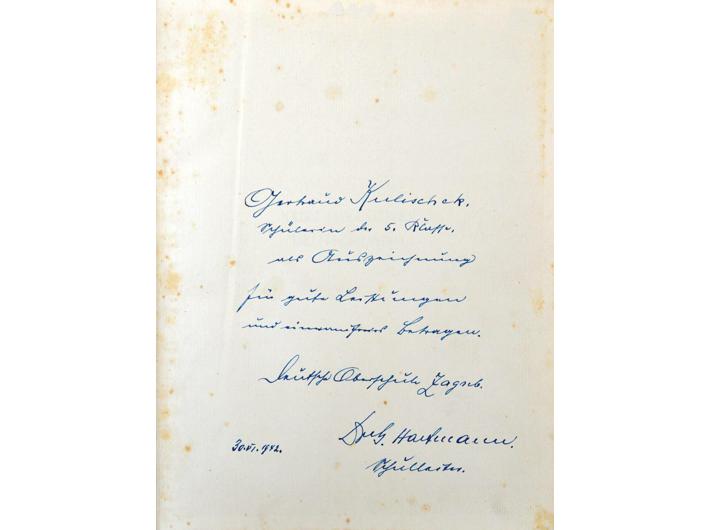 Gertraud Kulischek.
Schülerin der 5. Klasse.
als Auszeichnung
für gute Leistungen
und einwandfreies Betragen.
Deutsche Oberschule Zagreb.
Hartmann.
30.VI.1942.
Schulleiter.